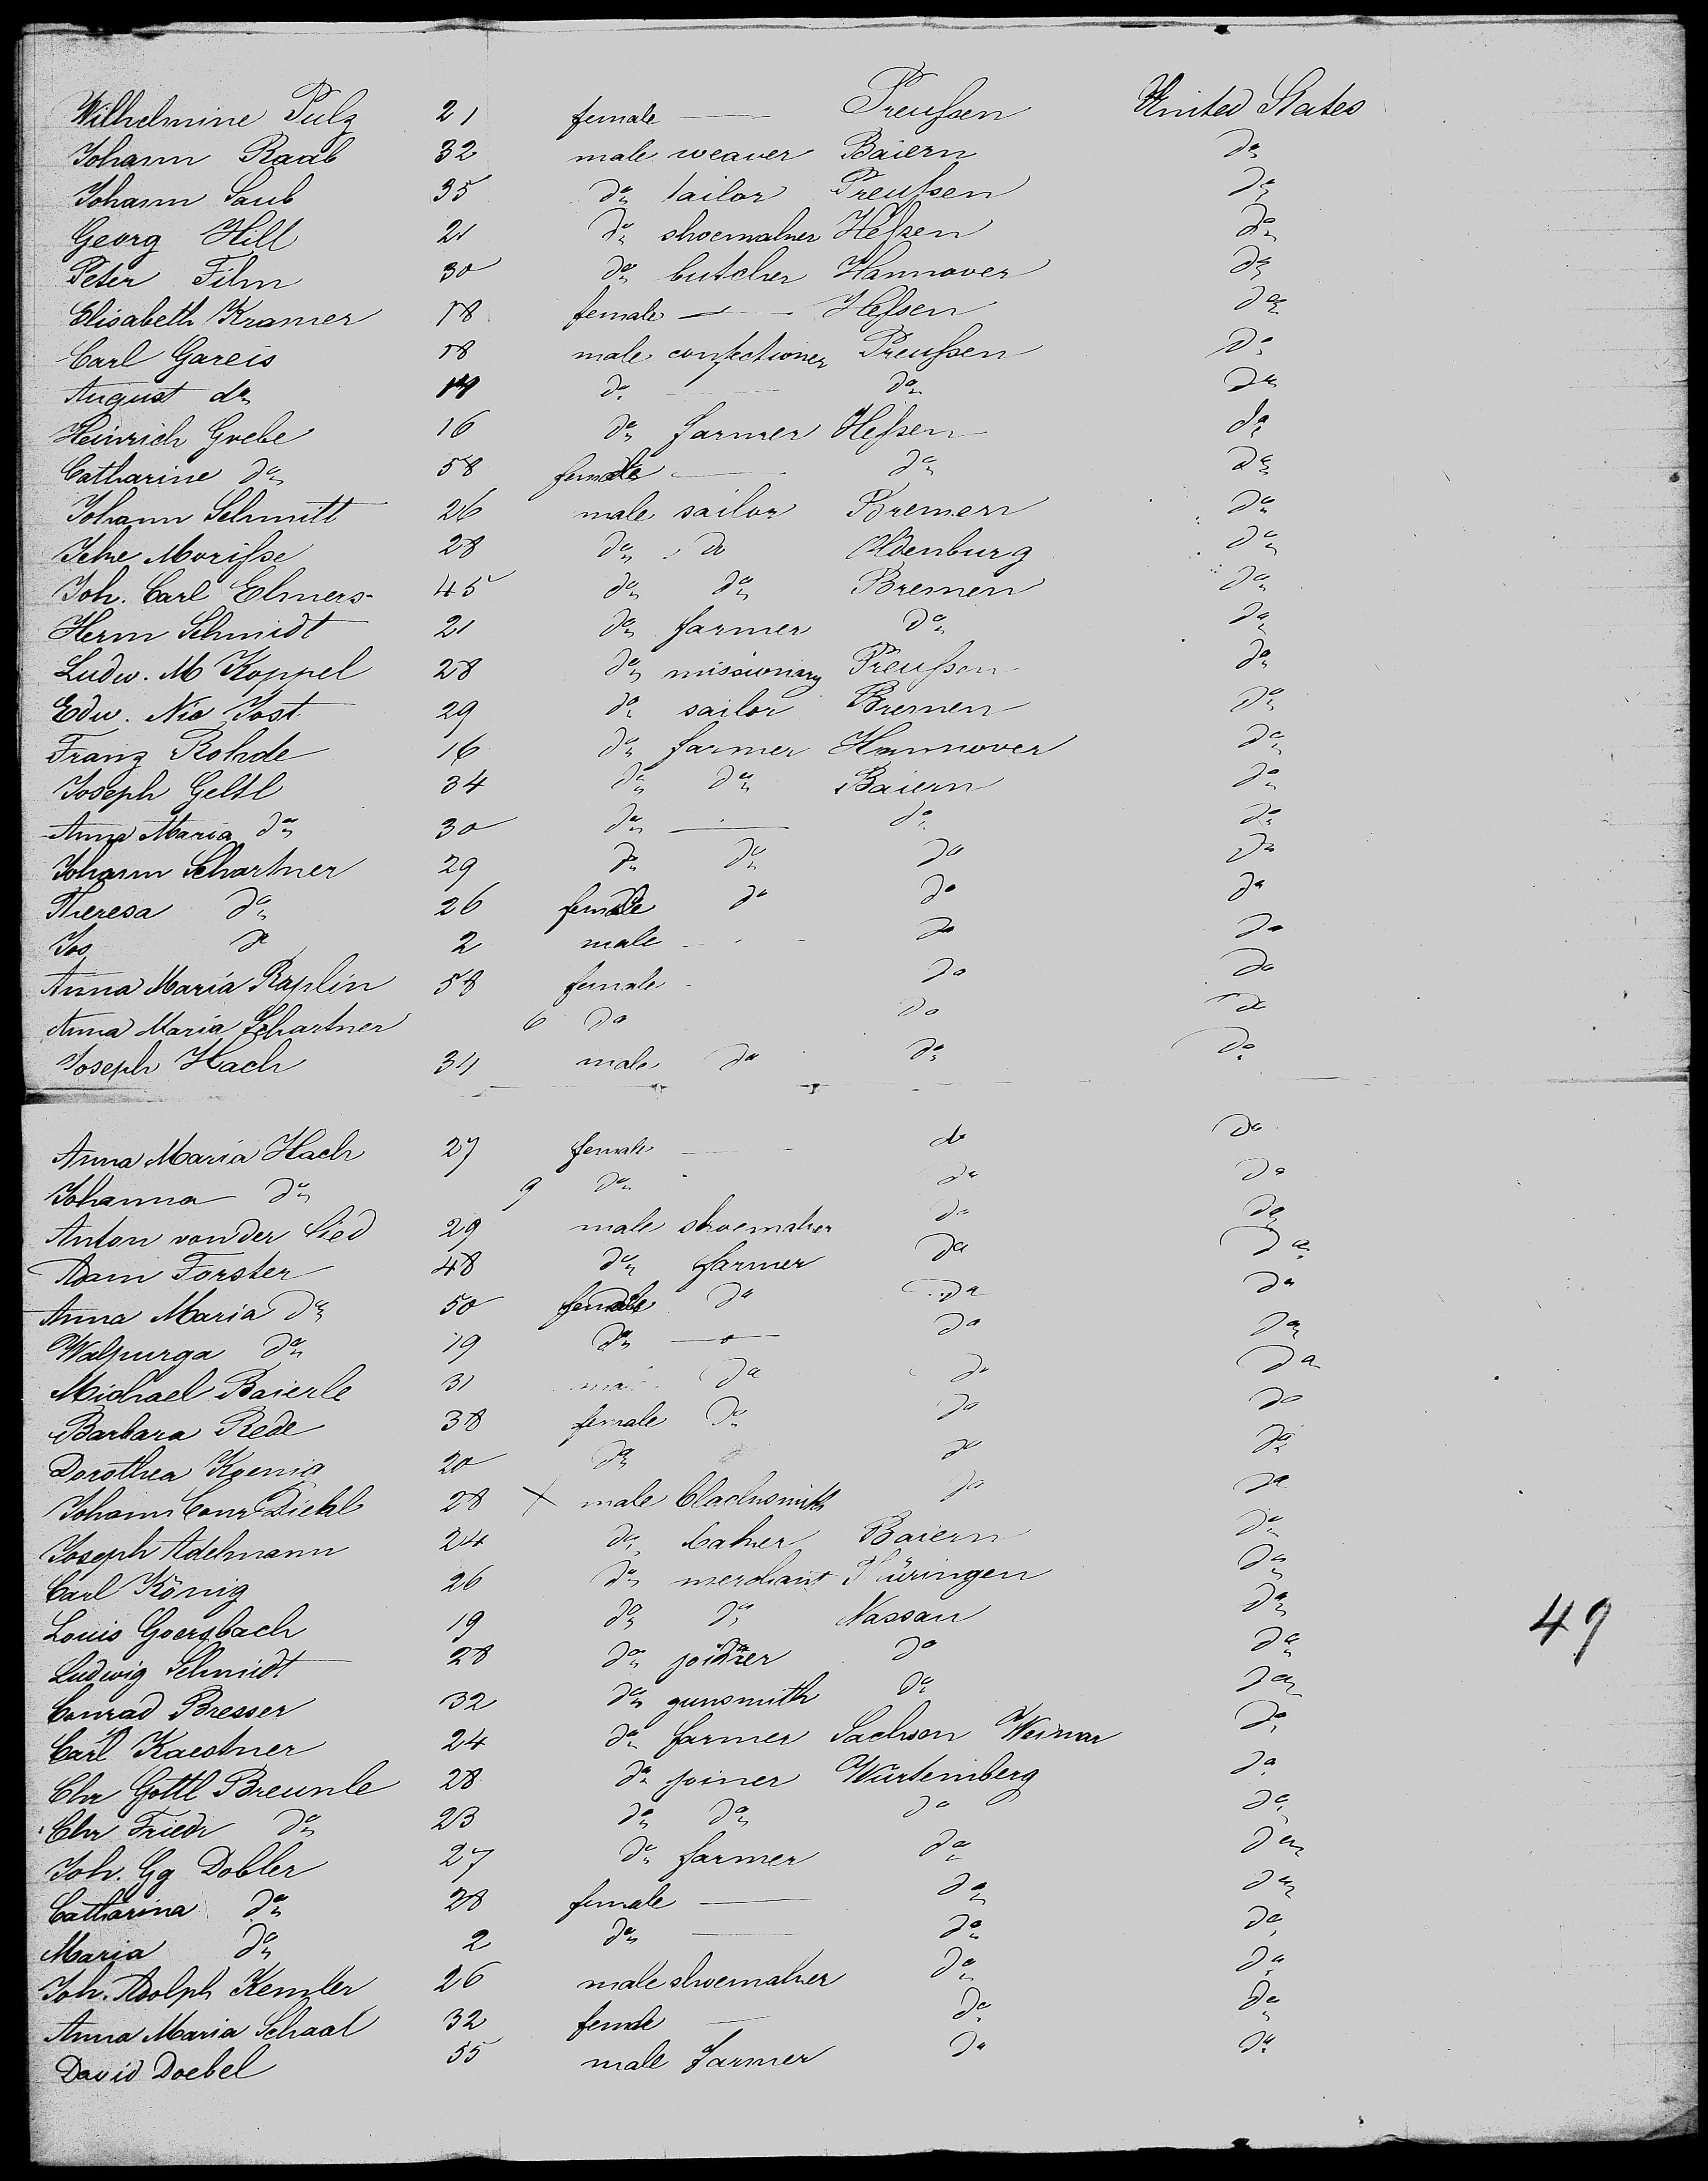 Wilhelmine Pulz 21 female — Preußen United States
Johann Raab 32 male weaver Baiern do
Johann Saub 35 do tailor Preußen do
Georg Hill 21 do shoemaker Heßen do
Peter Film 30 do butcher Hannover do
Elisabeth Kramer 18 female — Heßen do
Carl Gareis 18 male confectioner Preußen do
August do do — do do
Heinrich Grebe 16 do farmer Heßen do
Catharine do 58 female — do do
Johann Schmitt 26 male sailor Bremen do
Morisse 28 do do Oldenburg do
Joh. Carl Elmers 45 do do Bremen do
Herm Schmidt 21 do farmer do do
Ludw. M Koppel 28 do missionary Preußen do
Edw. Nic Jost 29 do sailor Bremen do
Franz Rohde 16 do farmer Hannover do
Joseph Geltl 34 do do Baiern do
Anna Maria do 30 do — do do
Johann Schartner 29 do do do do
Theresa do 26 female do do do
Jos do 2 male — do do
Anna Maria Raplin 58 female do do
Anna Maria Schartner 6 do do do
Joseph Hach 34 male do do do
Anna Maria Hach 27 female — do do
Johanna do 9 do do do
Anton von der Lied 29 male shoemaker do do
Adam Forster 48 do farmer do do
Anna Maria do 50 female do do do
Walpurga do 19 do — do do
Michael Baierle 31 male do do do
Barbara Rede 38 female do do do
Dorothea Koenig 20 do do do
Johann Conr Diehl 28 X male blacksmith do do
Joseph Adelmann 24 do baker Baiern do
Carl König 26 do merchant Thüringen do
Louis Goersbach 19 do do Nassau do
Ludwig Schmidt 28 do joiner do do
Conrad Bresser 32 do gunsmith do do
Carl Kaestner 24 do farmer Sachsen Weimar do
Chr Gottl Breunle 28 do joiner Würtemberg do
Chr Friedr do 23 do do do do
Joh. Gg Dobler 27 do farmer do do
Catharina do 28 female — do do
Maria do 2 do — do do
Joh. Adolph Kemler 26 male shoemaker do do
Anna Maria Schaal 32 female — do do
David Doebel 55 male farmer do do
49